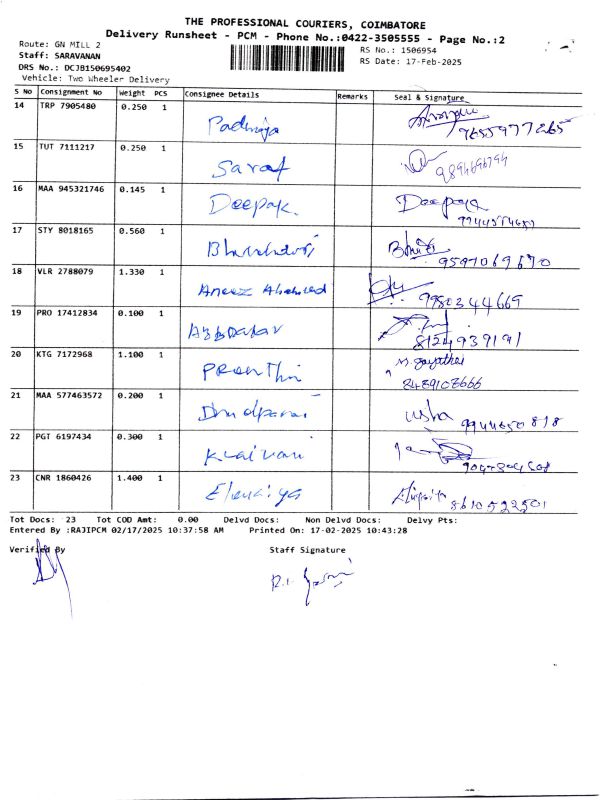 THE PROFESSIONAL COURIERS, COIMBATORE
Delivery Runsheet - PCM - Phone No.:0422-3505555 - Page No.:2
Route: GN MILL 2
RS No.: 1506954
Staff: SARAVANAN
RS Date: 17-Feb-2025
DRS No.: DCJB150695402
Vehicle: Two Wheeler Delivery
S No Consignment No Weight PCS Consignee Details Remarks Seal & Signature
14 TRP 7905480 0.250 1 Padmaja 9655977265
15 TUT 7111217 0.250 1 Saraf 9894696794
16 MAA 945321746 0.145 1 Deepak. Deepak
17 STY 8018165 0.560 1 9597069670
18 VLR 2788079 1.330 1 Aneez Ahamed 9980344669
19 PRO 17412834 0.100 1 8124939191
20 KTG 7172968 1.100 1 8489108666
21 MAA 577463572 0.200 1 usha 9944650818
22 PGT 6197434 0.300 1 Kalaivani
23 CNR 1860426 1.400 1 8610522501
Tot Docs: 23 Tot COD Amt: 0.00 Delvd Docs: Non Delvd Docs: Delvy Pts:
Entered By :RAJIPCM 02/17/2025 10:37:58 AM Printed On: 17-02-2025 10:43:28
Verified By Staff Signature